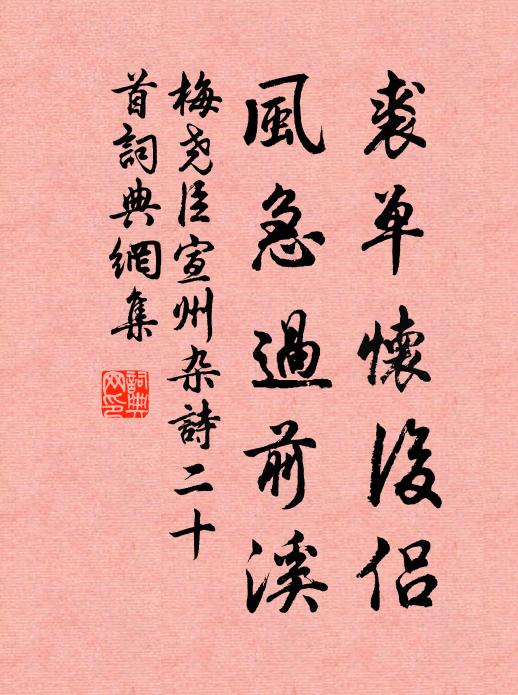 裘单懷後侣
風急過前溪
梅尧臣宣州杂詩二十
首詞典網集
詞典網印